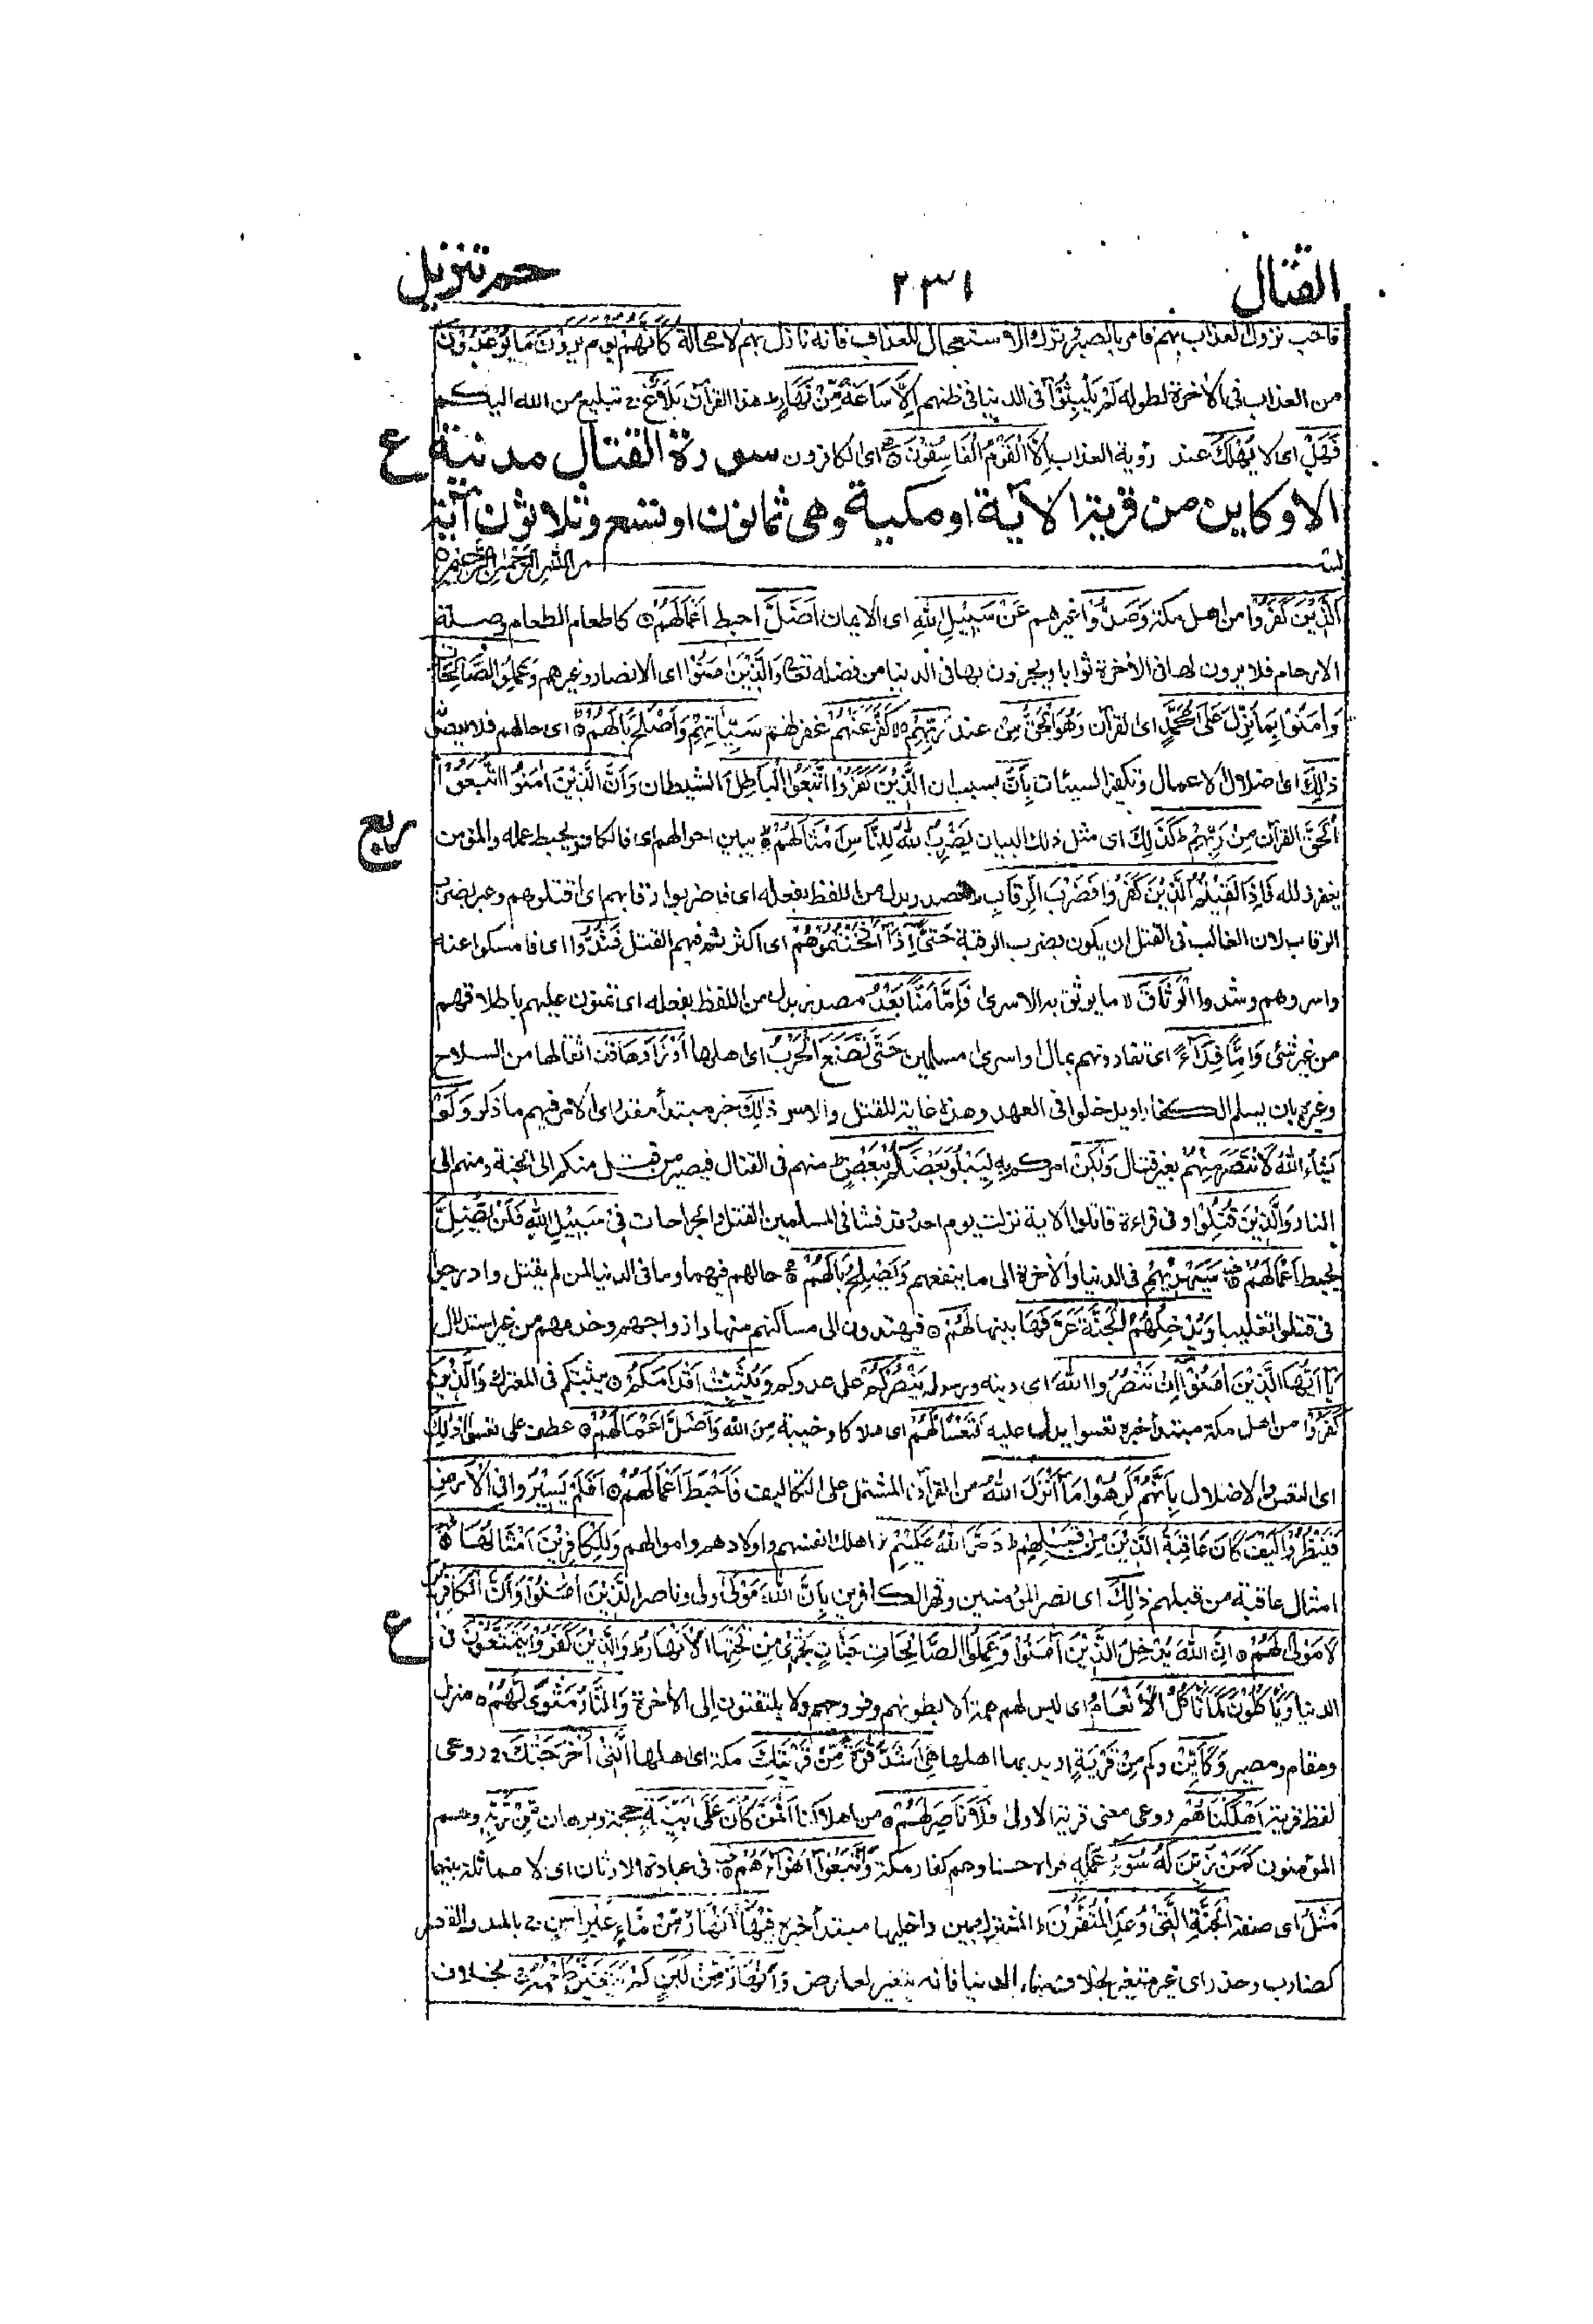 القتال ٢٣١ حم تنزيل
فاحب نزول العذاب بهم فامر بالصبر وترك الاستعجال للعذاب فانه نازل بهم لا محالة كَاَنَّهُمْ يَوْمَ يَرَوْنَ مَا يُوْعَدُوْنَ
من العذاب فى الأخرة لطوله لَمْ يَلْبَثُوْٓا فى الدنيا فى ظنهم اِلَّا سَاعَةً مِّنْ نَّهَارٍ ط هذا القرآن بَلَاغٌ ج تبليغ من الله اليكم
فَهَلْ اى لا يُهْلَكُ عند رؤية العذاب اِلَّا الْقَوْمُ الْفَاسِقُوْنَ ۝ اى الكافرون سورة القتال مدنية ع
الا وكاين من قرية الآية او مكية وهى ثمان او تسع وثلاثون آية
بسم الله الرحمن الرحيم ۝
اَلَّذِيْنَ كَفَرُوْا من اهل مكة وَصَدُّوْا غيرهم عَنْ سَبِيْلِ اللّٰهِ اى الايمان اَضَلَّ احبط اَعْمَالَهُمْ ۝ كاطعام الطعام وصلة
الارحام فلا يرون لها فى الأخرة ثوابا ويجزون بها فى الدنيا من فضله تعالى وَالَّذِيْنَ اٰمَنُوْا اى الانصار وغيرهم وَعَمِلُوا الصَّالِحَاتِ
وَاٰمَنُوْا بِمَا نُزِّلَ عَلٰى مُحَمَّدٍ اى القرآن وَهُوَ الْحَقُّ مِنْ عند رَّبِّهِمْ لا كَفَّرَ عَنْهُمْ غفر لهم سَيِّاٰتِهِمْ وَاَصْلَحَ بَالَهُمْ ۝ اى حالهم فلا يعصونه
ذٰلِكَ اى اضلال الاعمال وتكفير السيئات بِاَنَّ بسبب ان الَّذِيْنَ كَفَرُوا اتَّبَعُوا الْبَاطِلَ الشيطان وَاَنَّ الَّذِيْنَ اٰمَنُوا اتَّبَعُوْا
الْحَقَّ القرآن مِنْ رَّبِّهِمْ ط كَذٰلِكَ اى مثل ذلك البيان يَضْرِبُ اللّٰهُ لِلنَّاسِ اَمْثَالَهُمْ ۝ يبين احوالهم اى فالكافر يحبط عمله والمؤمن ربع
يغفر زلله فَاِذَا لَقِيْتُمُ الَّذِيْنَ كَفَرُوْا فَضَرْبَ الرِّقَابِ ط مصدر بدل من اللفظ بفعله اى فاضربوا رقابهم اى اقتلوهم وعبر بضرب
الرقاب لان الغالب فى القتل ان يكون بضرب الرقبة حَتّٰٓى اِذَآ اَثْخَنْتُمُوْهُمْ اى اكثرتم فيهم القتل فَشُدُّوا اى فامسكوا عنه
واسروهم وشدوا الْوَثَاقَ لا ما يوثق به الاسرى فَاِمَّا مَنًّا بَعْدُ مصدر بدل من اللفظ بفعله اى تمنون عليهم باطلاقهم
من غير شئ وَاِمَّا فِدَآءً اى تفادونهم بمال او اسرى مسلمين حَتّٰى تَضَعَ الْحَرْبُ اى اهلها اَوْزَارَهَا اثقالها من السلاح
وغيره بان يسلم الكفار او يدخلوا فى العهد وهذه غاية للقتل والاسر ذٰلِكَ خبر مبتدأ مقدر اى الامر فيهم ما ذكر وَلَوْ
يَشَآءُ اللّٰهُ لَانْتَصَرَ مِنْهُمْ بغير قتال وَلٰكِنْ امركم به لِّيَبْلُوَا بَعْضَكُمْ بِبَعْضٍ ط منهم فى القتال فيصير من قتل منكم الى الجنة ومنهم الى
النار وَالَّذِيْنَ قُتِلُوْا وفى قراءة قاتلوا الاية نزلت يوم احد وقد فشا فى المسلمين القتل والجراحات فِىْ سَبِيْلِ اللّٰهِ فَلَنْ يُّضِلَّ
يحبط اَعْمَالَهُمْ ۝ سَيَهْدِيْهِمْ فى الدنيا والأخرة الى ما ينفعهم وَيُصْلِحُ بَالَهُمْ ۝ حالهم فيهما وما فى الدنيا لمن لم يقتل وادرجوا
فى قتلوا تغليبا وَيُدْخِلُهُمُ الْجَنَّةَ عَرَّفَهَا بينها لَهُمْ ۝ فيهتدون الى مساكنهم منها وازواجهم وخدمهم من غير استدلال
يٰٓاَيُّهَا الَّذِيْنَ اٰمَنُوْٓا اِنْ تَنْصُرُوا اللّٰهَ اى دينه ورسوله يَنْصُرْكُمْ على عدوكم وَيُثَبِّتْ اَقْدَامَكُمْ ۝ يثبتكم فى المعترك وَالَّذِيْنَ
كَفَرُوْا من اهل مكة مبتدأ خبره تعسوا يدل عليه فَتَعْسًا لَّهُمْ اى هلاكا وخيبة من الله وَاَضَلَّ اَعْمَالَهُمْ ۝ عطف على تعسوا ذٰلِكَ
اى التعس والاضلال بِاَنَّهُمْ كَرِهُوْا مَآ اَنْزَلَ اللّٰهُ من القرآن المشتمل على التكاليف فَاَحْبَطَ اَعْمَالَهُمْ ۝ اَفَلَمْ يَسِيْرُوْا فِى الْاَرْضِ
فَيَنْظُرُوْا كَيْفَ كَانَ عَاقِبَةُ الَّذِيْنَ مِنْ قَبْلِهِمْ ط دَمَّرَ اللّٰهُ عَلَيْهِمْ ز اهلك انفسهم واولادهم واموالهم وَلِلْكَافِرِيْنَ اَمْثَالُهَا ۝
امثال عاقبة من قبلهم ذٰلِكَ اى نصر المؤمنين وقهر الكافرين بِاَنَّ اللّٰهَ مَوْلَى ولى وناصر الَّذِيْنَ اٰمَنُوْا وَاَنَّ الْكَافِرِيْنَ
لَا مَوْلٰى لَهُمْ ۝ اِنَّ اللّٰهَ يُدْخِلُ الَّذِيْنَ اٰمَنُوْا وَعَمِلُوا الصَّالِحَاتِ جَنَّاتٍ تَجْرِىْ مِنْ تَحْتِهَا الْاَنْهَارُ ط وَالَّذِيْنَ كَفَرُوْا يَتَمَتَّعُوْنَ فى ع
الدنيا وَيَاْكُلُوْنَ كَمَا تَاْكُلُ الْاَنْعَامُ اى ليس لهم همة الا بطونهم وفروجهم ولا يلتفتون الى الأخرة وَالنَّارُ مَثْوًى لَّهُمْ ۝ منزل
ومقام ومصير وَكَاَيِّنْ وكم مِّنْ قَرْيَةٍ اريد بها اهلها هِىَ اَشَدُّ قُوَّةً مِّنْ قَرْيَتِكَ مكة اى اهلها الَّتِىْٓ اَخْرَجَتْكَ ج روعى
لفظ قرية اَهْلَكْنَاهُمْ روعى معنى قرية الاولى فَلَا نَاصِرَ لَهُمْ ۝ من اهلاكنا اَفَمَنْ كَانَ عَلٰى بَيِّنَةٍ حجة وبرهان مِّنْ رَّبِّهٖ وهم
المؤمنون كَمَنْ زُيِّنَ لَهٗ سُوْٓءُ عَمَلِهٖ فراه حسنا وهم كفار مكة وَاتَّبَعُوْٓا اَهْوَآءَهُمْ ۝ فى عبادة الاوثان اى لا مماثلة بينهما
مَثَلُ اى صفة الْجَنَّةِ الَّتِىْ وُعِدَ الْمُتَّقُوْنَ ط المشتركة بين داخليها مبتدأ خبره فِيْهَآ اَنْهَارٌ مِّنْ مَّآءٍ غَيْرِ اٰسِنٍ ج بالمد والقصر
كضارب وحذر اى غير متغير بخلاف ماء الدنيا فانه يتغير لعارض وَاَنْهَارٌ مِّنْ لَّبَنٍ لَّمْ يَتَغَيَّرْ طَعْمُهٗ ج بخلاف